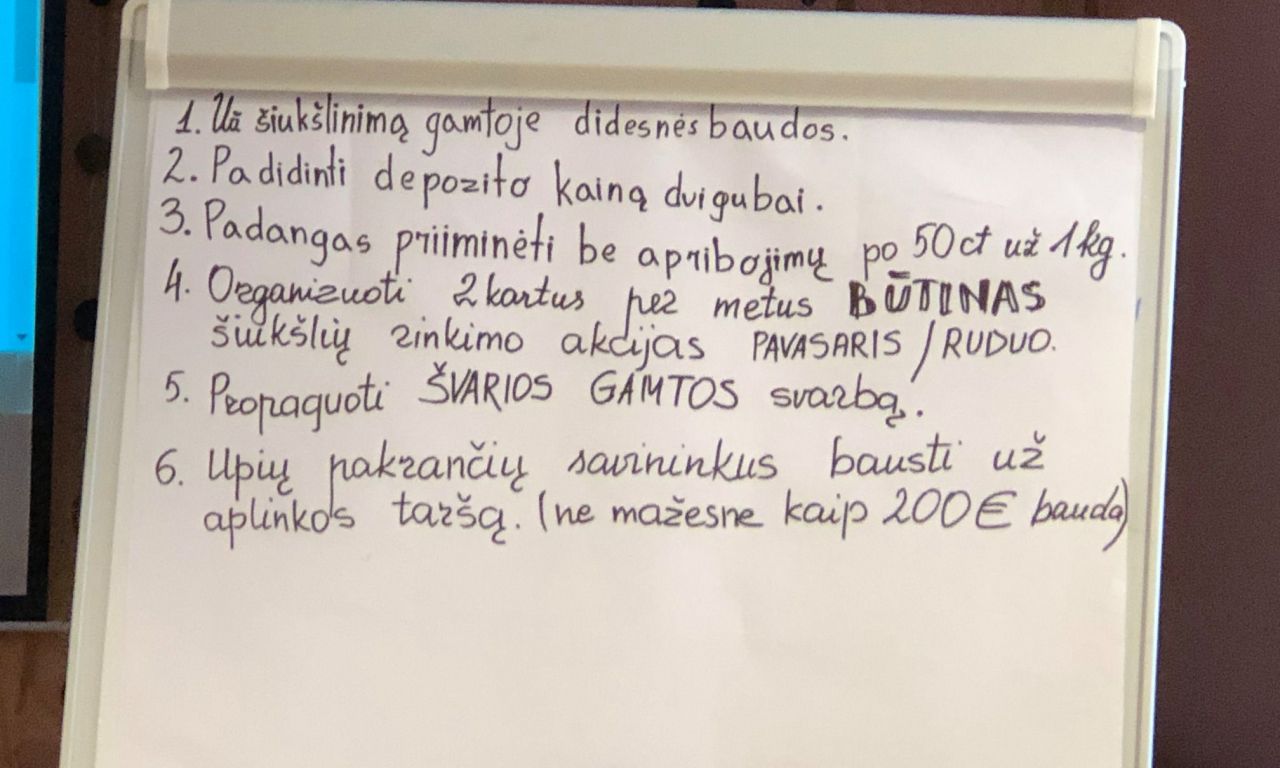 1. Už šiukšlinimą gamtoje didesnės baudos.
2. Padidinti depozito kainą dvigubai.
3. Padangas priiminėti be apribojimų po 50 ct už 1 kg.
4. Organizuoti 2 kartus per metus BŪTINAS
šiukšlių rinkimo akcijas PAVASARIS / RUDUO.
5. Propaguoti ŠVARIOS GAMTOS svarbą.
6. Upių pakrančių savininkus bausti už
aplinkos taršą. (ne mažesne kaip 200 € bauda)